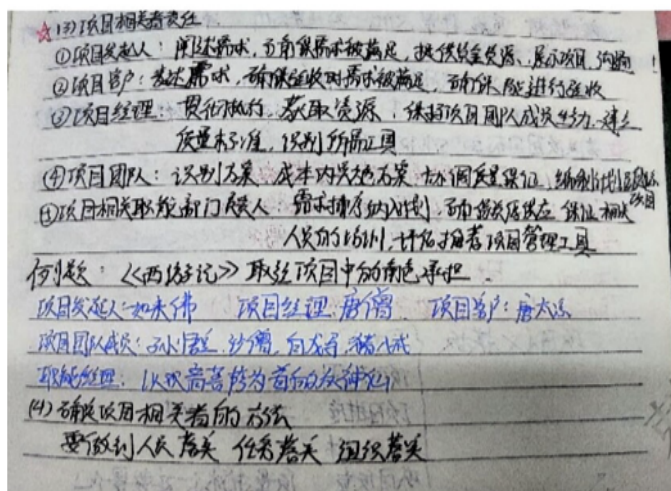 ☆(3)项目相关者责任
①项目发起人：阐述需求，确保需求被满足，提供资金资源，展示项目，沟通
②项目客户：表达需求，确保验收时需求被满足，确保 进行验收
③项目经理：贯彻执行，获取资源，保持项目团队成员 建立
质量标准，识别所需工具
④项目团队：识别方案，成本内 方案，协调质量保证，编制计划
项目
⑤项目相关职能部门负责人：需求排序纳入计划，确保 供应 保证相关
人员的培训，评估推荐项目管理工具
例题：《西游记》取经项目中的角色承担.
项目发起人:如来佛 项目经理:唐僧 项目客户:唐太宗
项目团队成员:孙悟空 沙僧 白龙马 猪八戒
职能经理:以观音菩萨为首的众神仙
(4)确定项目相关者的方法
要做到人员 关 任务 关 组织 关